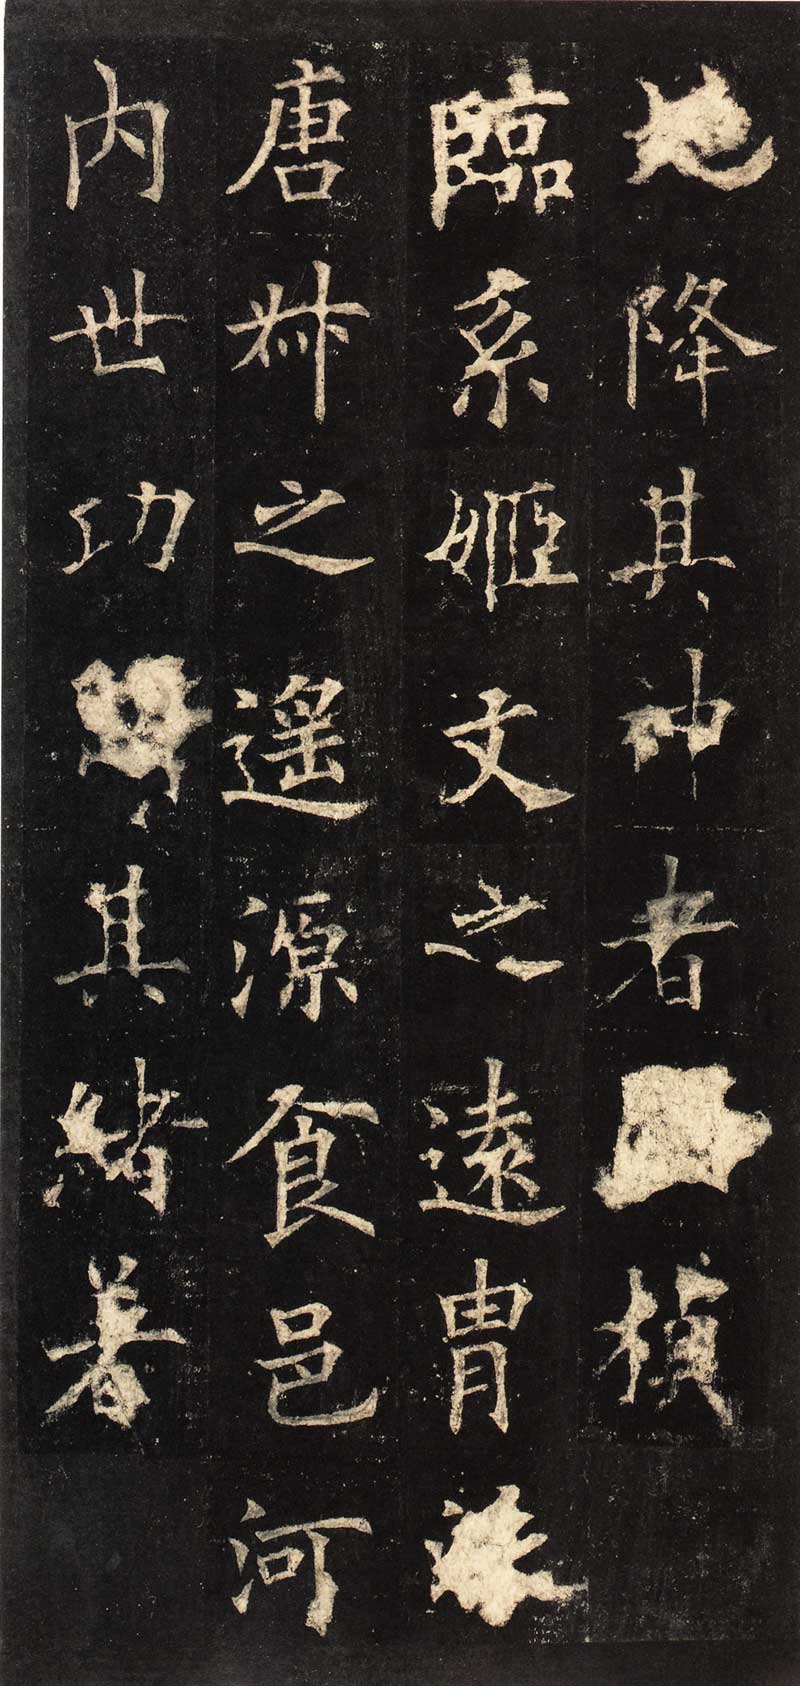 地降其神者楨
臨系姬文之遠胄
唐叔之遥源食邑河
内世功其緒著